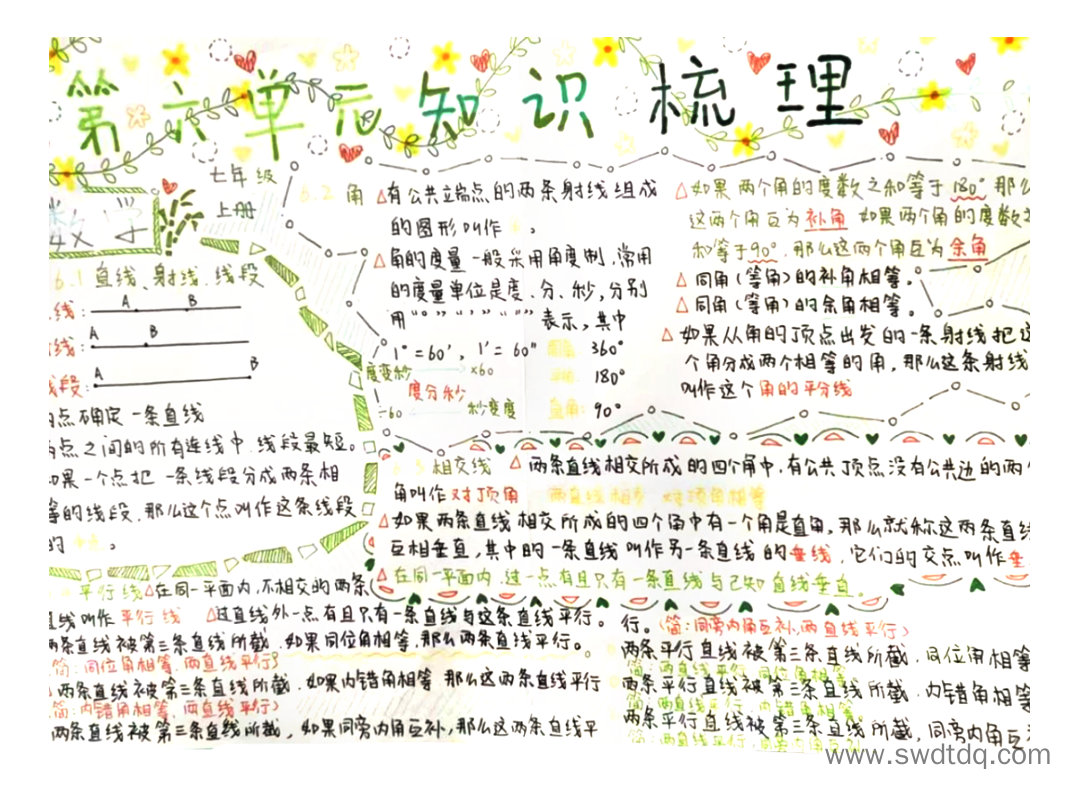 第六单元知识梳理
七年级
上册
数学
6.1 直线、射线、线段
线:
A B
线:
A B
线段:
A B
点确定一条直线
点之间的所有连线中,线段最短。
如果一个点把一条线段分成两条相
等的线段,那么这个点叫作这条线段
的
6.2 角
△有公共端点的两条射线组成
的图形叫作 。
△角的度量一般采用角度制,常用
的度量单位是度、分、秒,分别
用“°”“′”“″”表示,其中
1°=60′, 1′=60″
度变秒 ×60
度分秒
-60 秒变度
周角: 360°
平角: 180°
直角: 90°
△如果两个角的度数之和等于180°,那么
这两个角互为补角 如果两个角的度数之
和等于90°,那么这两个角互为余角
△同角(等角)的补角相等。
△同角(等角)的余角相等。
△如果从角的顶点出发的一条射线把这
个角分成两个相等的角,那么这条射线
叫作这个角的平分线
6.3 相交线 △两条直线相交所成的四个角中,有公共顶点没有公共边的两个
角叫作对顶角 两直线相交 对顶角相等
△如果两条直线相交所成的四个角中有一个角是直角,那么就称这两条直线
互相垂直,其中的一条直线叫作另一条直线的垂线,它们的交点叫作垂
△在同一平面内,过一点有且只有一条直线与已知直线垂直。
平行线△在同一平面内,不相交的两条
直线叫作平行线 △过直线外一点有且只有一条直线与这条直线平行。
两条直线被第三条直线所截,如果同位角相等,那么两条直线平行。
简:同位角相等,两直线平行)
两条直线被第三条直线所截,如果内错角相等 那么这两条直线平行
简:内错角相等,两直线平行)
两条直线被第三条直线所截,如果同旁内角互补,那么这两条直线平
行。(简:同旁内角互补,两直线平行)
两条平行直线被第三条直线所截,同位角相等
简:两直线平行,同位角相等
两条平行直线被第三条直线所截,内错角相等
简:两直线平行,内错角相等
两条平行直线被第三条直线所截,同旁内角互
简:两直线平行,同旁内角互补
www.swdtdq.com